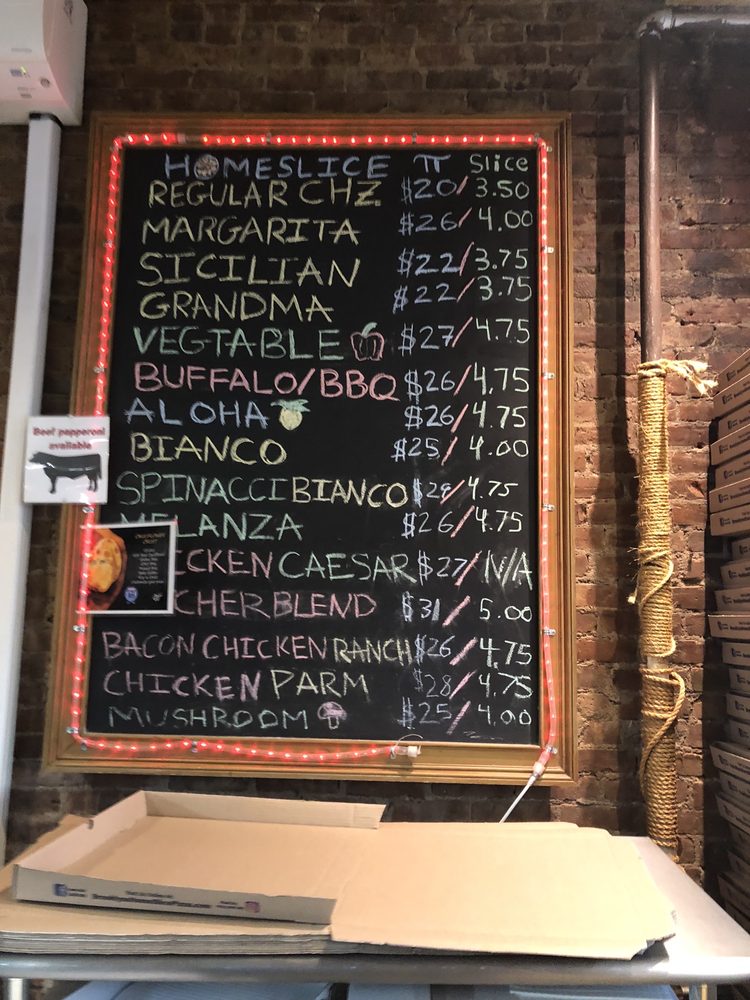 HOMESLICE π Slice
REGULAR CHZ $20/3.50
MARGARITA $26/4.00
SICILIAN $22/3.75
GRANDMA $22/3.75
VEGTABLE $27/4.75
BUFFALO/BBQ $26/4.75
ALOHA $26/4.75
BIANCO $25/4.00
SPINACCI BIANCO $28/4.75
MELANZA $26/4.75
ICKEN CAESAR $27/N/A
CHER BLEND $31/5.00
BACON CHICKEN RANCH $26/4.75
CHICKEN PARM $28/4.75
MUSHROOM $25/4.00
Beef pepperoni
available